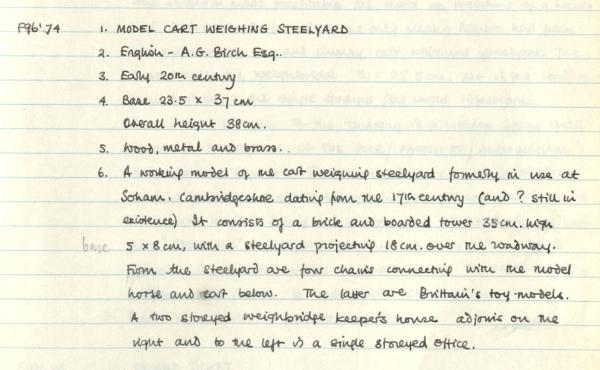 F96'74 1. MODEL CART WEIGHING STEELYARD
2. English - A.G. Birch Esq..
3. Early 20th century
4. Base 23.5 x 37 cm
Overall height 38cm.
5. Wood, metal and brass..
6. A working model of the cart weighing steelyard formerly in use at
Soham, Cambridgeshire dating from the 17th century (and ? still in
existence) It consists of a brick and boarded tower 35cm. high
base 5 x 8cm, with a steelyard projecting 18cm. over the roadway.
From the steelyard are four chains connecting with the model
horse and cart below. The latter are Brittain's toy-models.
A two storeyed weighbridge keeper's house adjoins on the
right and to the left is a single storeyed office.